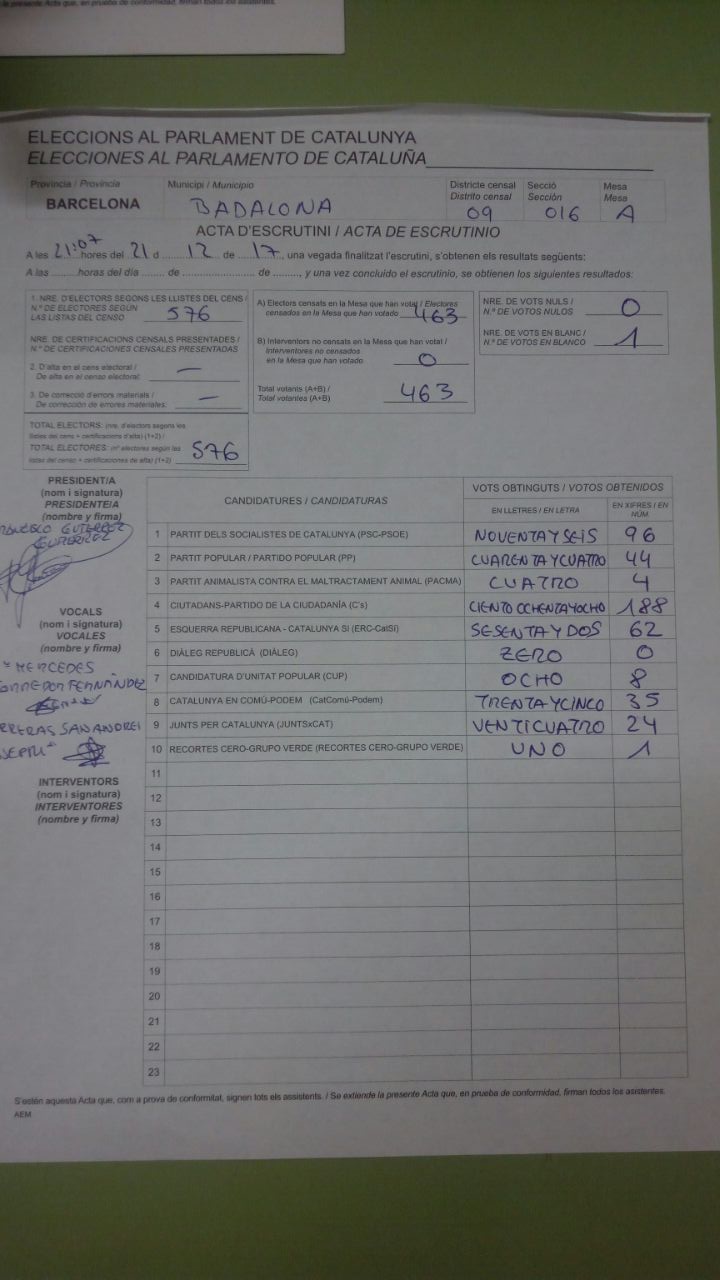 la presente Acta que, en prueba de conformidad, firman todos los asistentes.
ELECCIONS AL PARLAMENT DE CATALUNYA
ELECCIONES AL PARLAMENTO DE CATALUÑA
Província / Provincia
BARCELONA
Municipi / Municipio
BADALONA
Districte censal
Distrito censal
09
Secció
Sección
016
Mesa
Mesa
A
ACTA D'ESCRUTINI / ACTA DE ESCRUTINIO
A les 21:07 hores del 21 d 12 de 17, una vegada finalitzat l'escrutini, s'obtenen els resultats següents:
A las ........ horas del día ....... de ......................... de ........., y una vez concluido el escrutinio, se obtienen los siguientes resultados:
1. NRE. D'ELECTORS SEGONS LES LLISTES DEL CENS /
N.º DE ELECTORES SEGÚN
LAS LISTAS DEL CENSO
576
NRE. DE CERTIFICACIONS CENSALS PRESENTADES /
N.º DE CERTIFICACIONES CENSALES PRESENTADAS
2. D'alta en el cens electoral /
De alta en el censo electoral: —
3. De correcció d'errors materials /
De corrección de errores materiales: —
TOTAL ELECTORS: (nre. d'electors segons les
llistes del cens + certificacions d'alta) (1+2) /
TOTAL ELECTORES: (nº electores según las
listas del censo + certificaciones de alta) (1+2)
576
A) Electors censats en la Mesa que han votat / Electores
censados en la Mesa que han votado 463
B) Interventors no censats en la Mesa que han votat /
Interventores no censados
en la Mesa que han votado 0
Total votants (A+B) /
Total votantes (A+B)
463
NRE. DE VOTS NULS /
N.º DE VOTOS NULOS
0
NRE. DE VOTS EN BLANC /
N.º DE VOTOS EN BLANCO
1
PRESIDENT/A
(nom i signatura)
PRESIDENTE/A
(nombre y firma)
GUTERREZ
GUTERREZ
VOCALS
(nom i signatura)
VOCALES
(nombre y firma)
MERCEDES
FERNÁNDEZ
SAN ANDREI
INTERVENTORS
(nom i signatura)
INTERVENTORES
(nombre y firma)
CANDIDATURES / CANDIDATURAS
VOTS OBTINGUTS / VOTOS OBTENIDOS
EN LLETRES / EN LETRA
EN XIFRES / EN NÚM.
1 PARTIT DELS SOCIALISTES DE CATALUNYA (PSC-PSOE) NOVENTA Y SEIS 96
2 PARTIT POPULAR / PARTIDO POPULAR (PP) CUARENTA Y CUATRO 44
3 PARTIT ANIMALISTA CONTRA EL MALTRACTAMENT ANIMAL (PACMA) CUATRO 4
4 CIUTADANS-PARTIDO DE LA CIUDADANÍA (C's) CIENTO OCHENTA Y OCHO 188
5 ESQUERRA REPUBLICANA - CATALUNYA SÍ (ERC-CatSí) SESENTA Y DOS 62
6 DIÀLEG REPUBLICÀ (DIÀLEG) ZERO 0
7 CANDIDATURA D'UNITAT POPULAR (CUP) OCHO 8
8 CATALUNYA EN COMÚ-PODEM (CatComú-Podem) TRENTA Y CINCO 35
9 JUNTS PER CATALUNYA (JUNTSxCAT) VENTICUATRO 24
10 RECORTES CERO-GRUPO VERDE (RECORTES CERO-GRUPO VERDE) UNO 1
11
12
13
14
15
16
17
18
19
20
21
22
23
S'estén aquesta Acta que, com a prova de conformitat, signen tots els assistents. / Se extiende la presente Acta que, en prueba de conformidad, firman todos los asistentes.
AEM